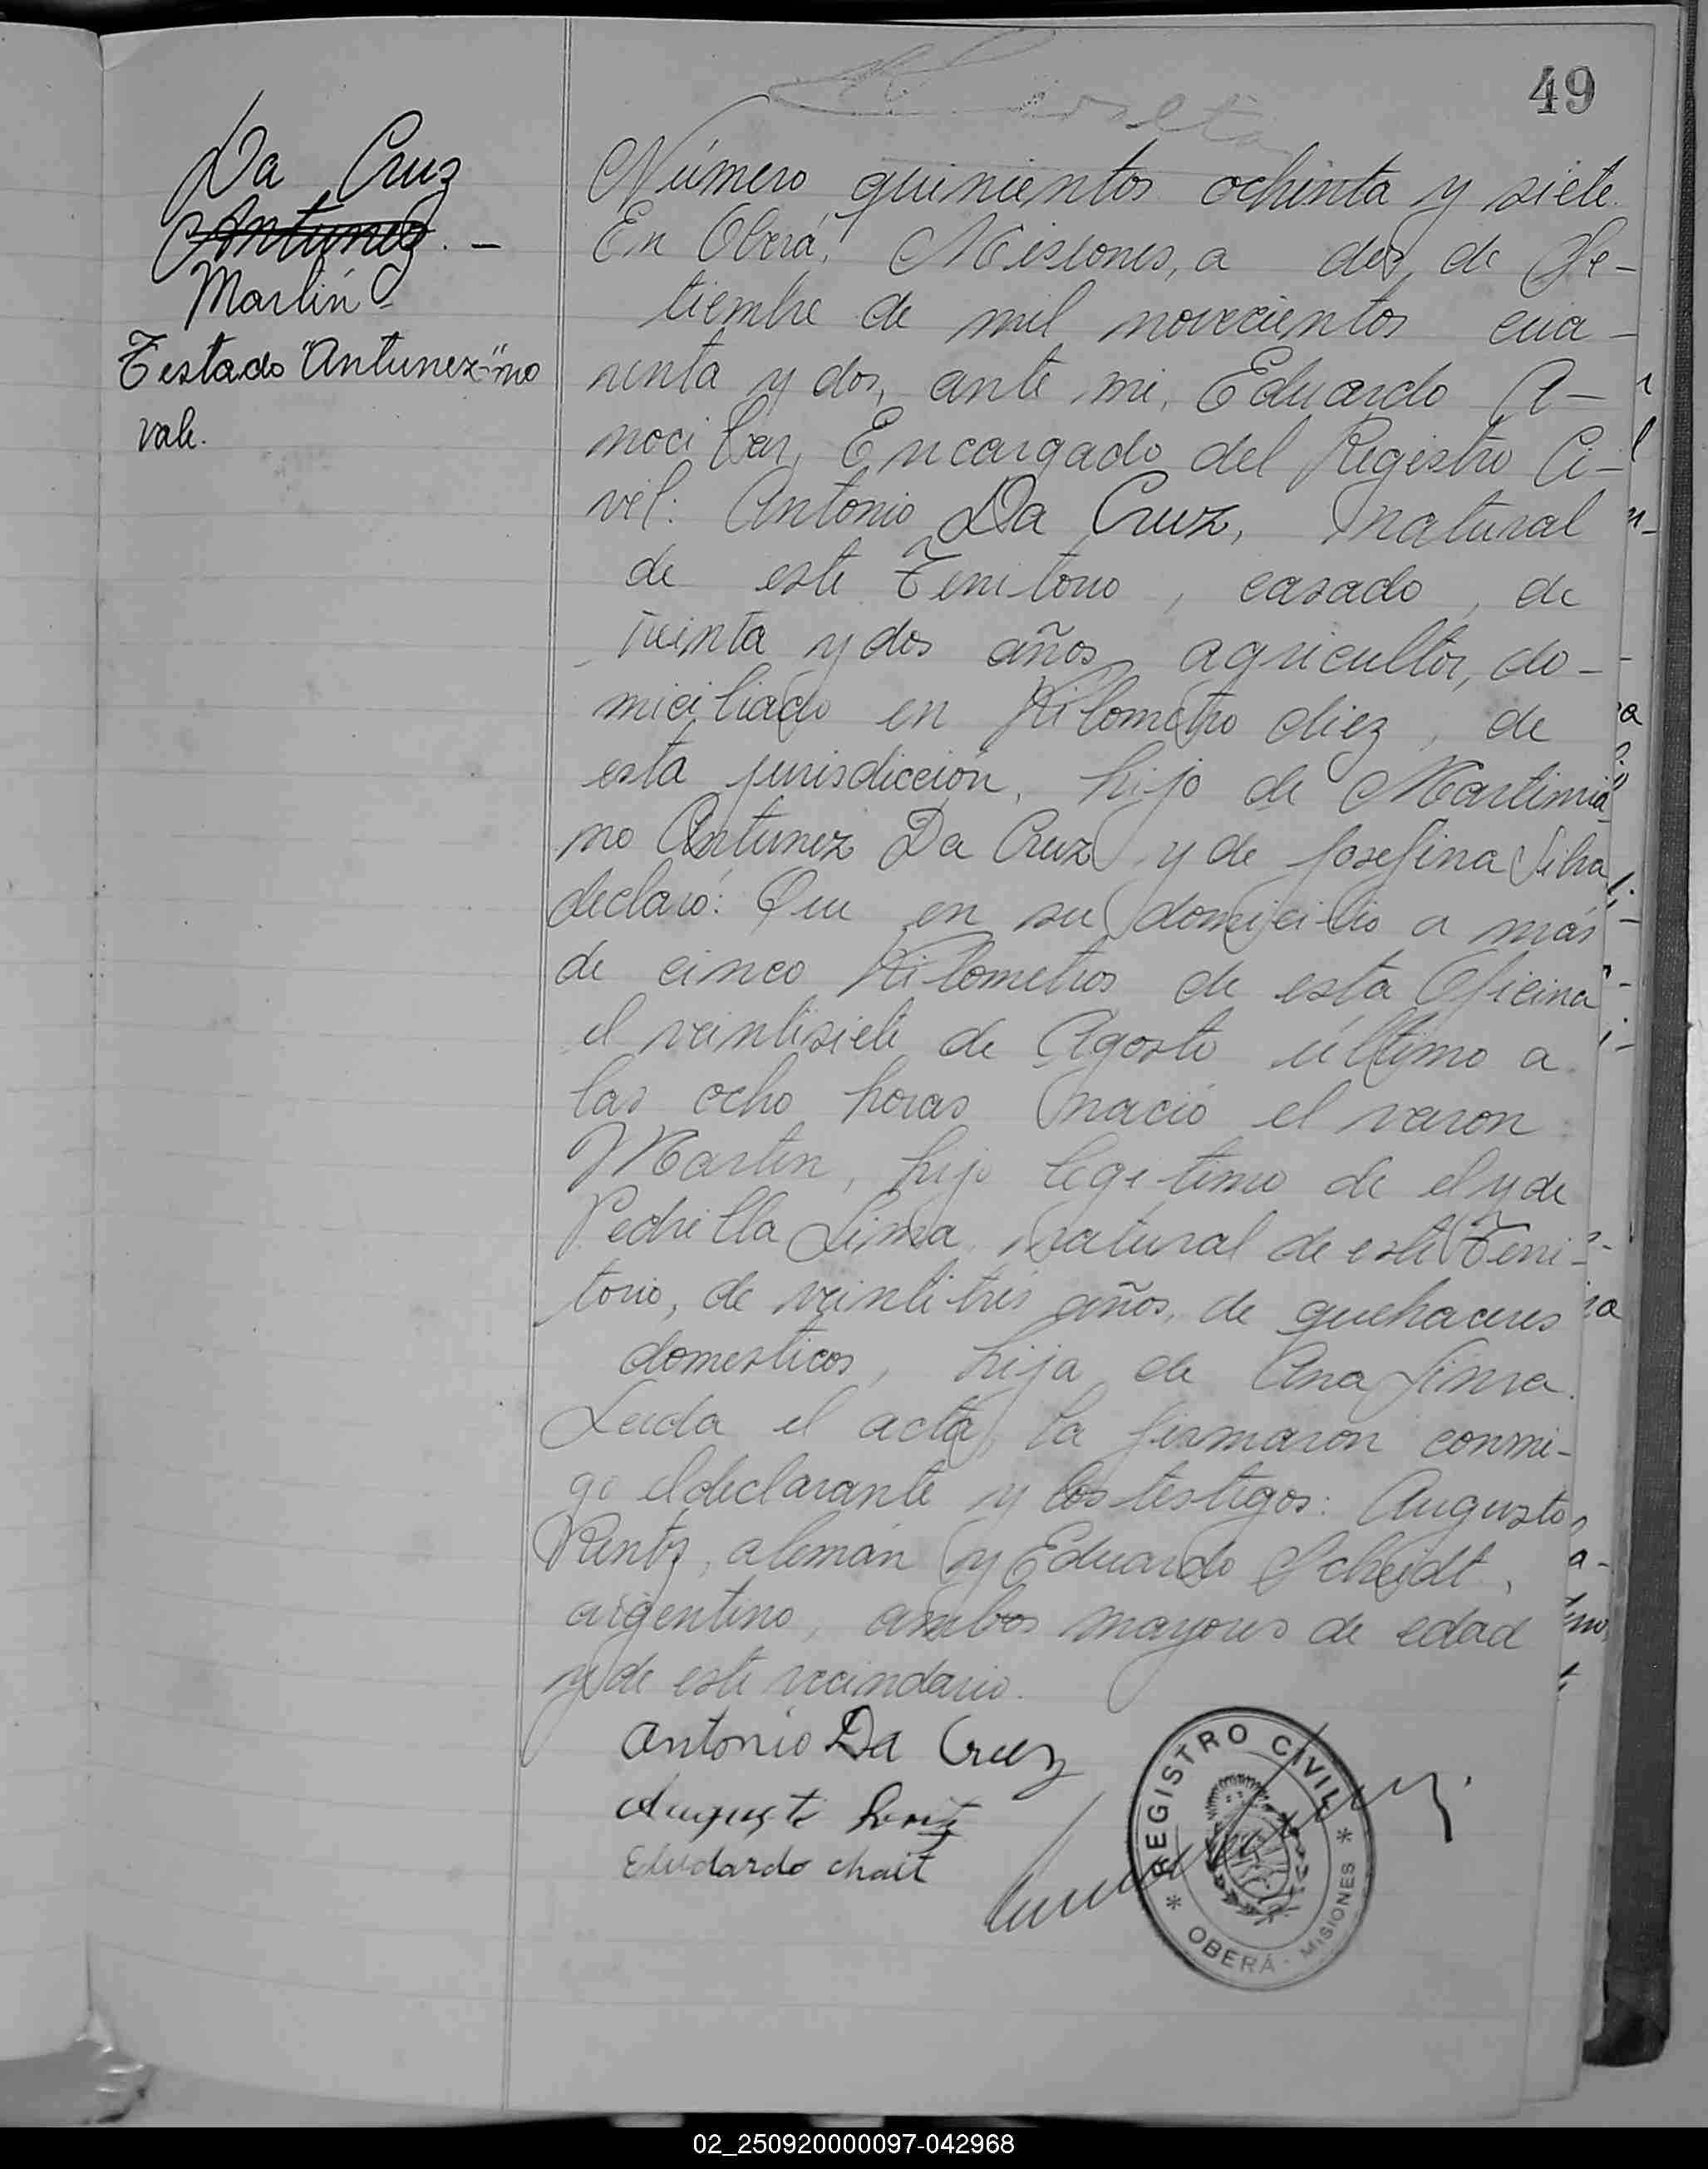 49
Da Cruz
Antunez. -
Martín -
Testado "Antunez" no
vale.
Número quinientos ochenta y siete.
En Oberá, Misiones, a dos de Se-
tiembre de mil novecientos cua-
renta y dos, ante mi, Eduardo A-
nocibar, Encargado del Registro Ci-
vil: Antonio Da Cruz, natural
de este Territorio, casado, de
treinta y dos años, agricultor, do-
miciliado en Kilometro diez, de
esta jurisdicción, hijo de Martimia-
no Antunez Da Cruz y de Josefina Silva
declaró: Que en su domicilio a más
de cinco Kilometros de esta Oficina
el veintisiete de Agosto último a
las ocho horas nació el varon
Martin, hijo legitimo de el y de
Pedrilla Lima, natural de este Terri-
torio, de veintitrés años, de quehaceres
domesticos, hija de Ana Lima.
Leida el acta, la firmaron conmi-
go el declarante y los testigos: Augusto
Rentz, alemán y Eduardo Scheidt,
argentino, ambos mayores de edad
y de este vecindario.
Antonio Da Cruz
Auguste
Eduardo chait
REGISTRO CIVIL
* OBERÁ - MISIONES *
02_250920000097-042968